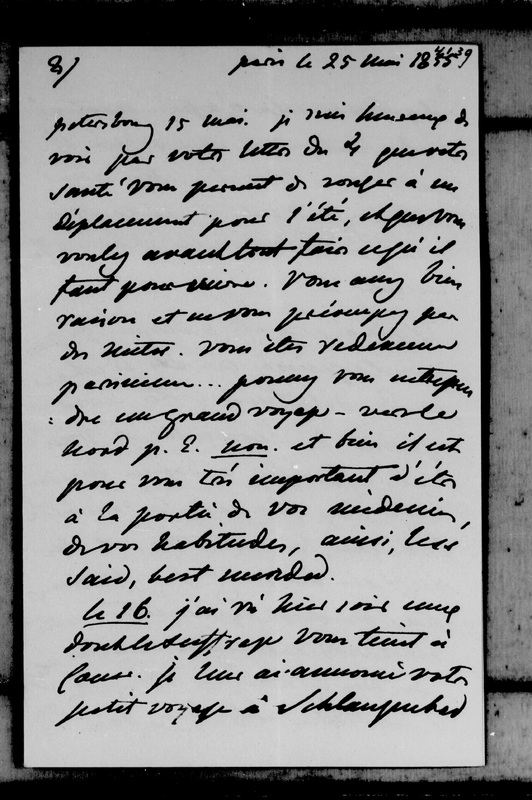 8) paris le 25 mai 18
petersbourg 15 mai. je suis heureux de
voir par votre lettre du que votre
santé vous permet de songer à un
déplacement pour l'été, et que vous
voulez avant tout faire ce qu'il
faut pour vivre. Vous avez bien
raison et ne vous préoccupez pas
du reste. vous êtes redevenue
parisienne... pouvez vous entrepren
:dre un grand voyage - vers le
nord p. E. non. et bien il est
pour vous très important d'être
à la portée de vos médecins,
de vos habitudes, ainsi, less
said, best mended.
le 26. j'ai vu hier soir ceux
dont le suffrage vous tient à
coeur. je leur ai annoncé votre
petit voyage à Schlangenbad